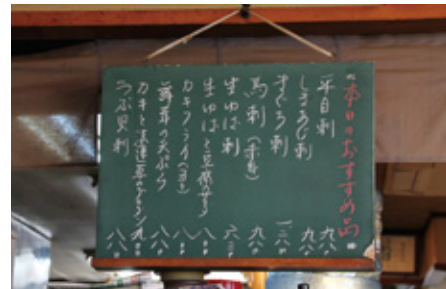 本日のおすすめ品
平目刺 九八〇
しまあじ刺 九八〇
まぐろ刺 一二八〇
馬刺(赤身) 九八〇
生ゆば刺 六八〇
生ゆばと豆腐サラダ 八八〇
カキフライ 八八〇
舞茸の天ぷら 八八〇
カキと法蓮草のグラタン 九八〇
つぶ貝刺 八八〇